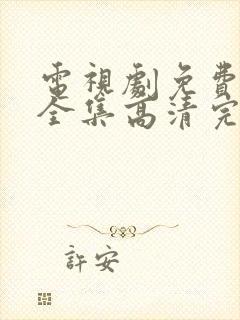 電視劇免費
全集高清完
許安